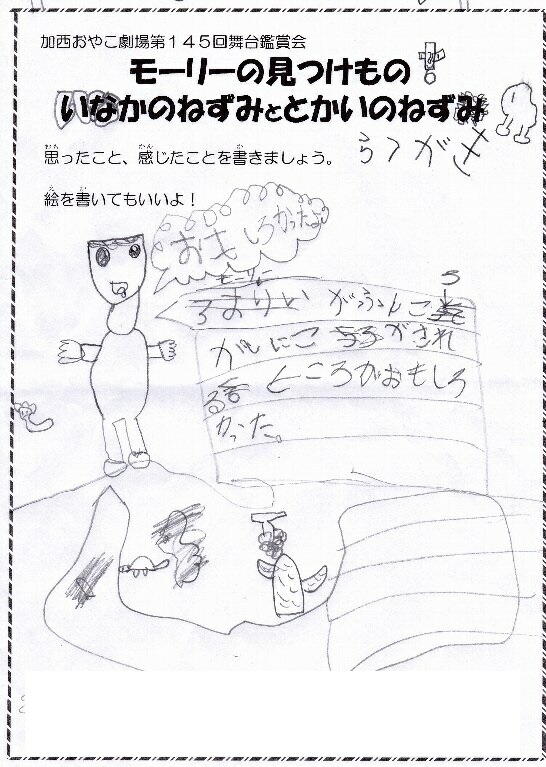 加西おやこ劇場第１４５回舞台鑑賞会
モーリーの見つけもの
いなかのねずみととかいのねずみ
らくがき
思ったこと、感じたことを書きましょう。
絵を書いてもいいよ！
おもしろかったよ
モーリー
がふんこ
ころがされ
る ところがおもしろ
かった。